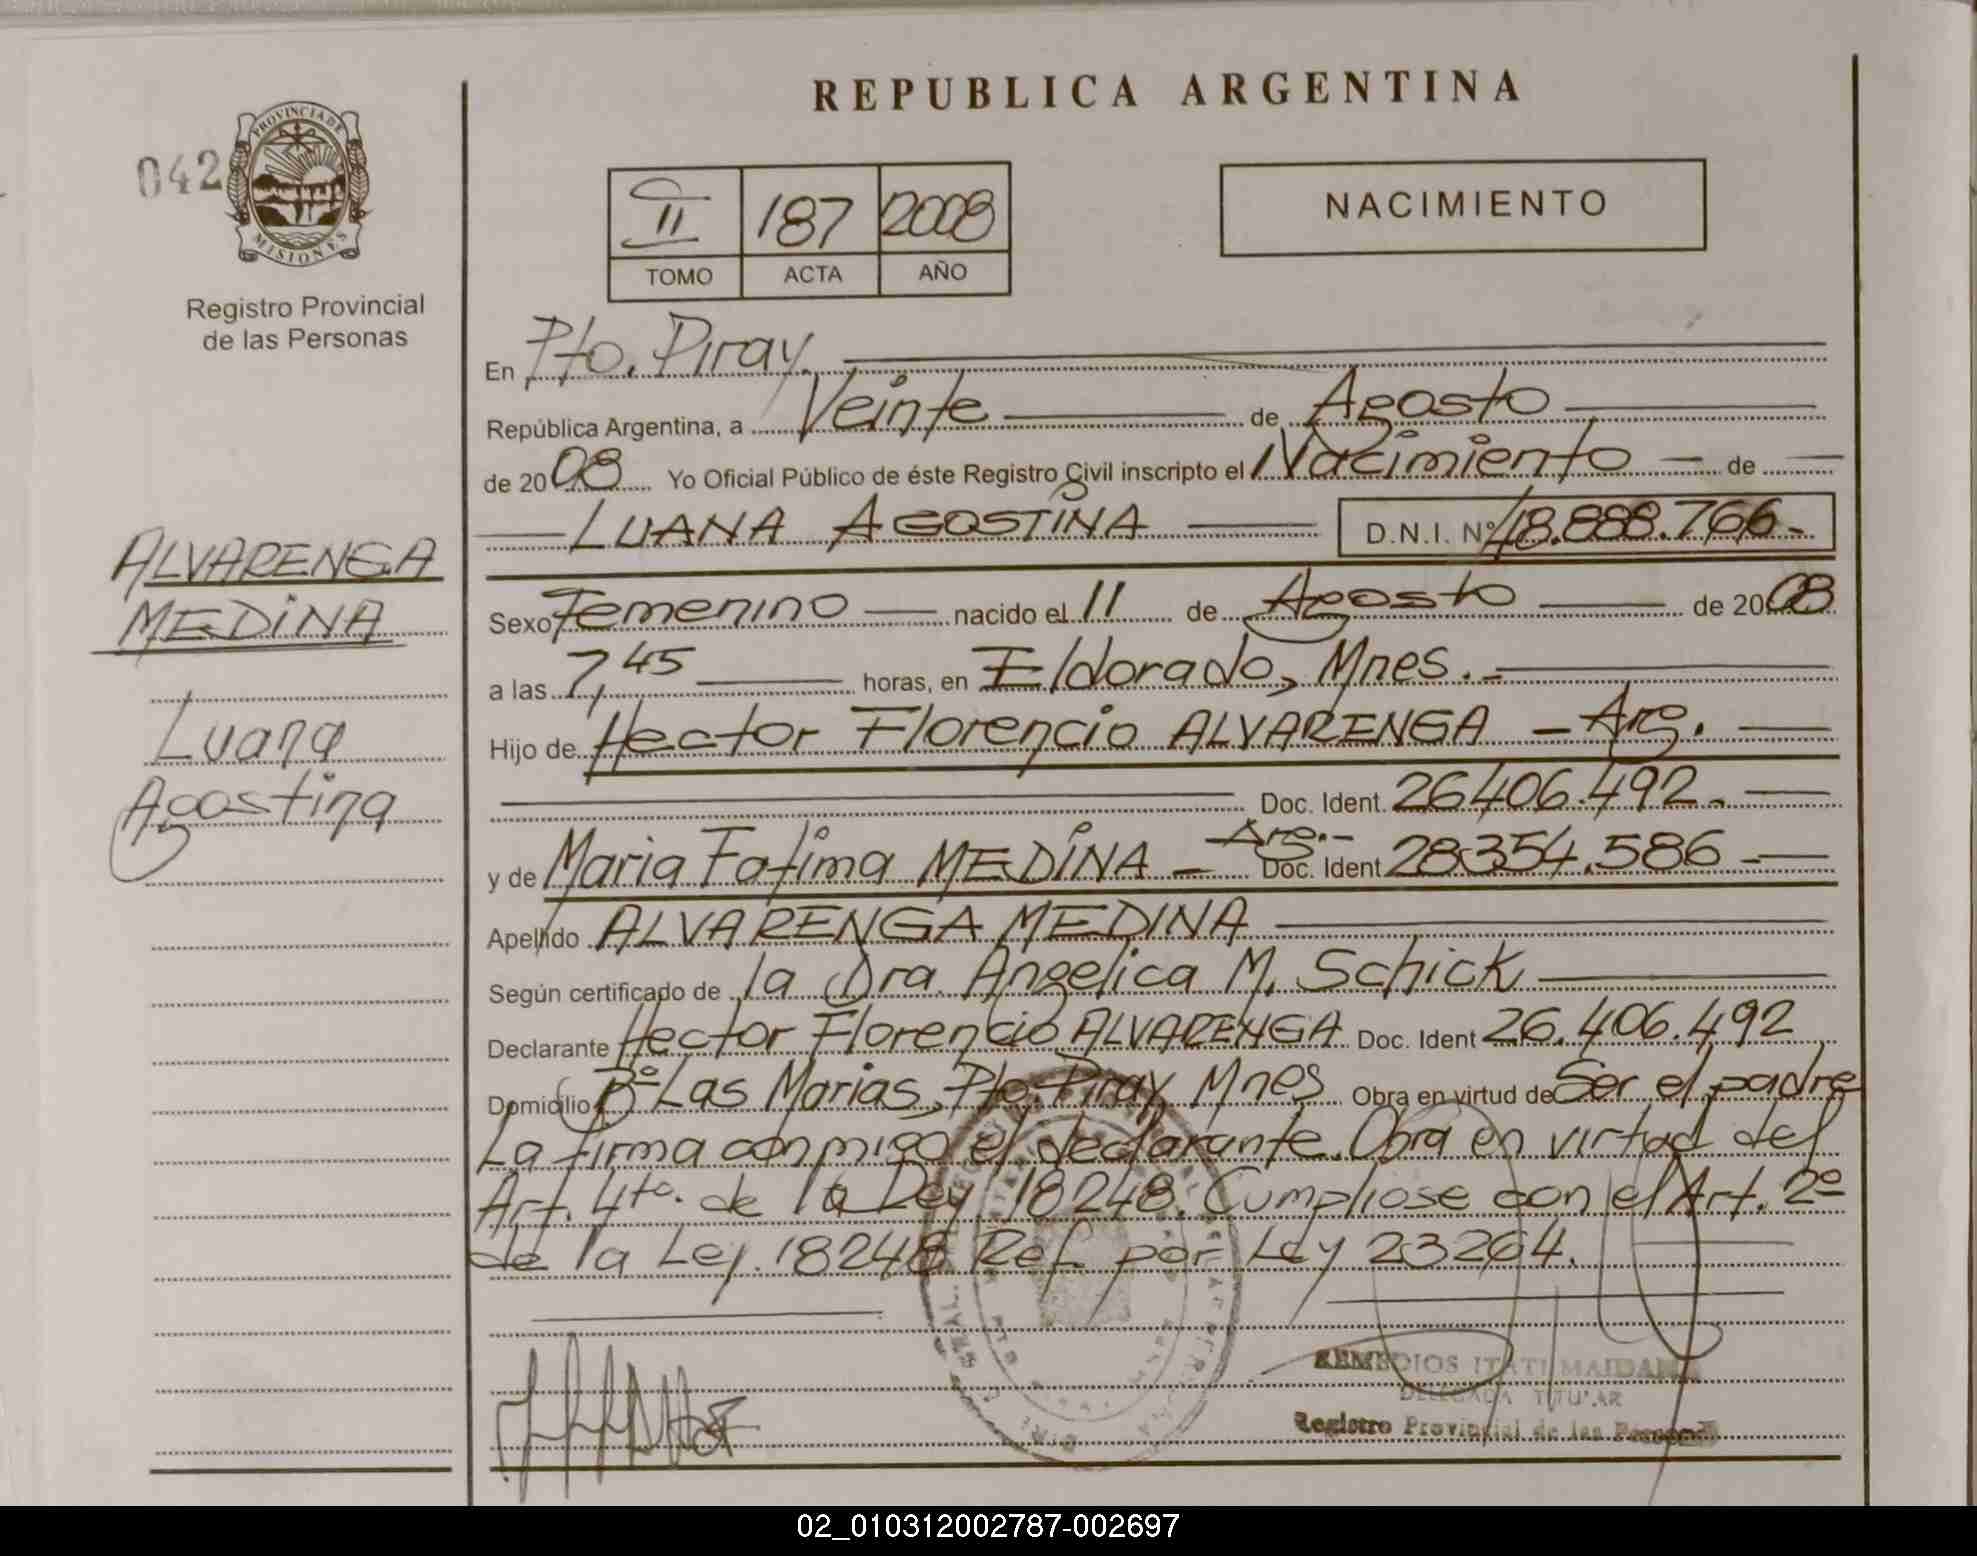 REPUBLICA ARGENTINA
042
PROVINCIA DE
MISIONES
Registro Provincial
de las Personas
II 187 2008
TOMO ACTA AÑO
NACIMIENTO
En Pto. Piray
República Argentina, a Veinte de Agosto
de 2008 Yo Oficial Público de éste Registro Civil inscripto el Nacimiento de
LUANA AGOSTINA D.N.I. Nº 48.888.766-
ALVARENGA
MEDINA
Luana
Agostina
Sexo Femenino nacido el 11 de Agosto de 2008
a las 7,45 horas, en Eldorado, Mnes.-
Hijo de Hector Florencio ALVARENGA - Arg.
Doc. Ident. 26406.492.
y de Maria Fatima MEDINA - Arg.- Doc. Ident 28354.586-
Apellido ALVARENGA MEDINA
Según certificado de la Dra Angelica M. Schick
Declarante Hector Florencio ALVARENGA Doc. Ident 26.406.492
Domicilio Bº Las Marias, Pto. Piray Mnes Obra en virtud de Ser el padre
La firma conmigo el declarante. Obra en virtud del
Art. 4to. de la Ley 18248. Cumpliose con el Art. 2º
de la Ley. 18248 Ref por Ley 23264.
REMEDIOS ITATI MAIDANA
DELEGADA TITULAR
Registro Provincial de las Personas
02_010312002787-002697